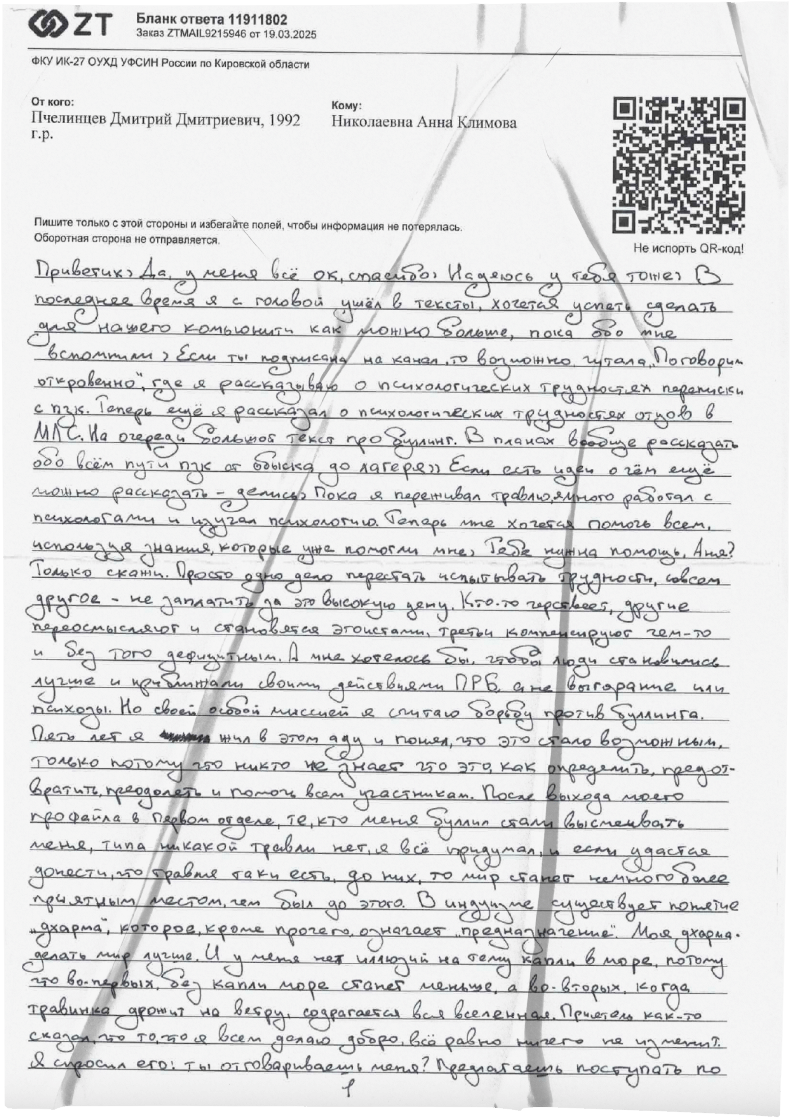 ZT
Бланк ответа 11911802
Заказ ZTMAIL9215946 от 19.03.2025
ФКУ ИК-27 ОУХД УФСИН России по Кировской области
От кого:
Пчелинцев Дмитрий Дмитриевич, 1992
г.р.
Кому:
Николаевна Анна Климова
Пишите только с этой стороны и избегайте полей, чтобы информация не потерялась.
Оборотная сторона не отправляется.
Не испорть QR-код!
Приветик) Да, у меня всё ок, спасибо) Надеюсь у тебя тоже) В
последнее время я с головой ушёл в тексты, хочется успеть сделать
для нашего комьюнити как можно больше, пока обо мне
вспомнили) Если ты подписана на канал, то возможно, читала „Поговорим
откровенно“, где я рассказываю о психологических трудностях переписки
с пзк. Теперь ещё я рассказал о психологических трудностях отцов в
МЛС. На очереди большой текст про буллинг. В планах вообще рассказать
обо всём пути пзк от обыска до лагеря)) Если есть идеи о чём ещё
можно рассказать – делись) Пока я переживал травлю, я много работал с
психологами и изучал психологию. Теперь мне хочется помочь всем,
используя знания, которые уже помогли мне) Тебе нужна помощь, Аня?
Только скажи. Просто одно дело перестать испытывать трудности, совсем
другое – не заплатить за это высокую цену. Кто-то черствеет, другие
переосмысляют и становятся эгоистами, третьи компенсируют чем-то
и без того дефицитным. А мне хотелось бы, чтобы люди становились
лучше и приближали своими действиями ПРБ, а не выгорание или
психозы. Но своей особой миссией я считаю борьбу против буллинга.
Пять лет я жил в этом аду и понял, что это стало возможным,
только потому что никто не знает что это, как определить, предот-
вратить, преодолеть и помочь всем участникам. После выхода моего
профайла в Первом отделе, те, кто меня буллил стали высмеивать
меня, типа никакой травли нет, я всё придумал, и если удастся
донести, что травля таки есть, до них, то мир станет немного более
приятным местом, чем был до этого. В индуизме существует понятие
„дхарма“, которое, кроме прочего, означает „предназначение“. Моя дхарма -
делать мир лучше. И у меня нет иллюзий на тему капли в море, потому
что во-первых, без капли море станет меньше, а во-вторых, когда
травинка дрожит на ветру, содрагается вся вселенная. Приятель как-то
сказал, что то, что я всем делаю добро, всё равно ничего не изменит.
Я спросил его: ты отговариваешь меня? Предлагаешь поступать по
1